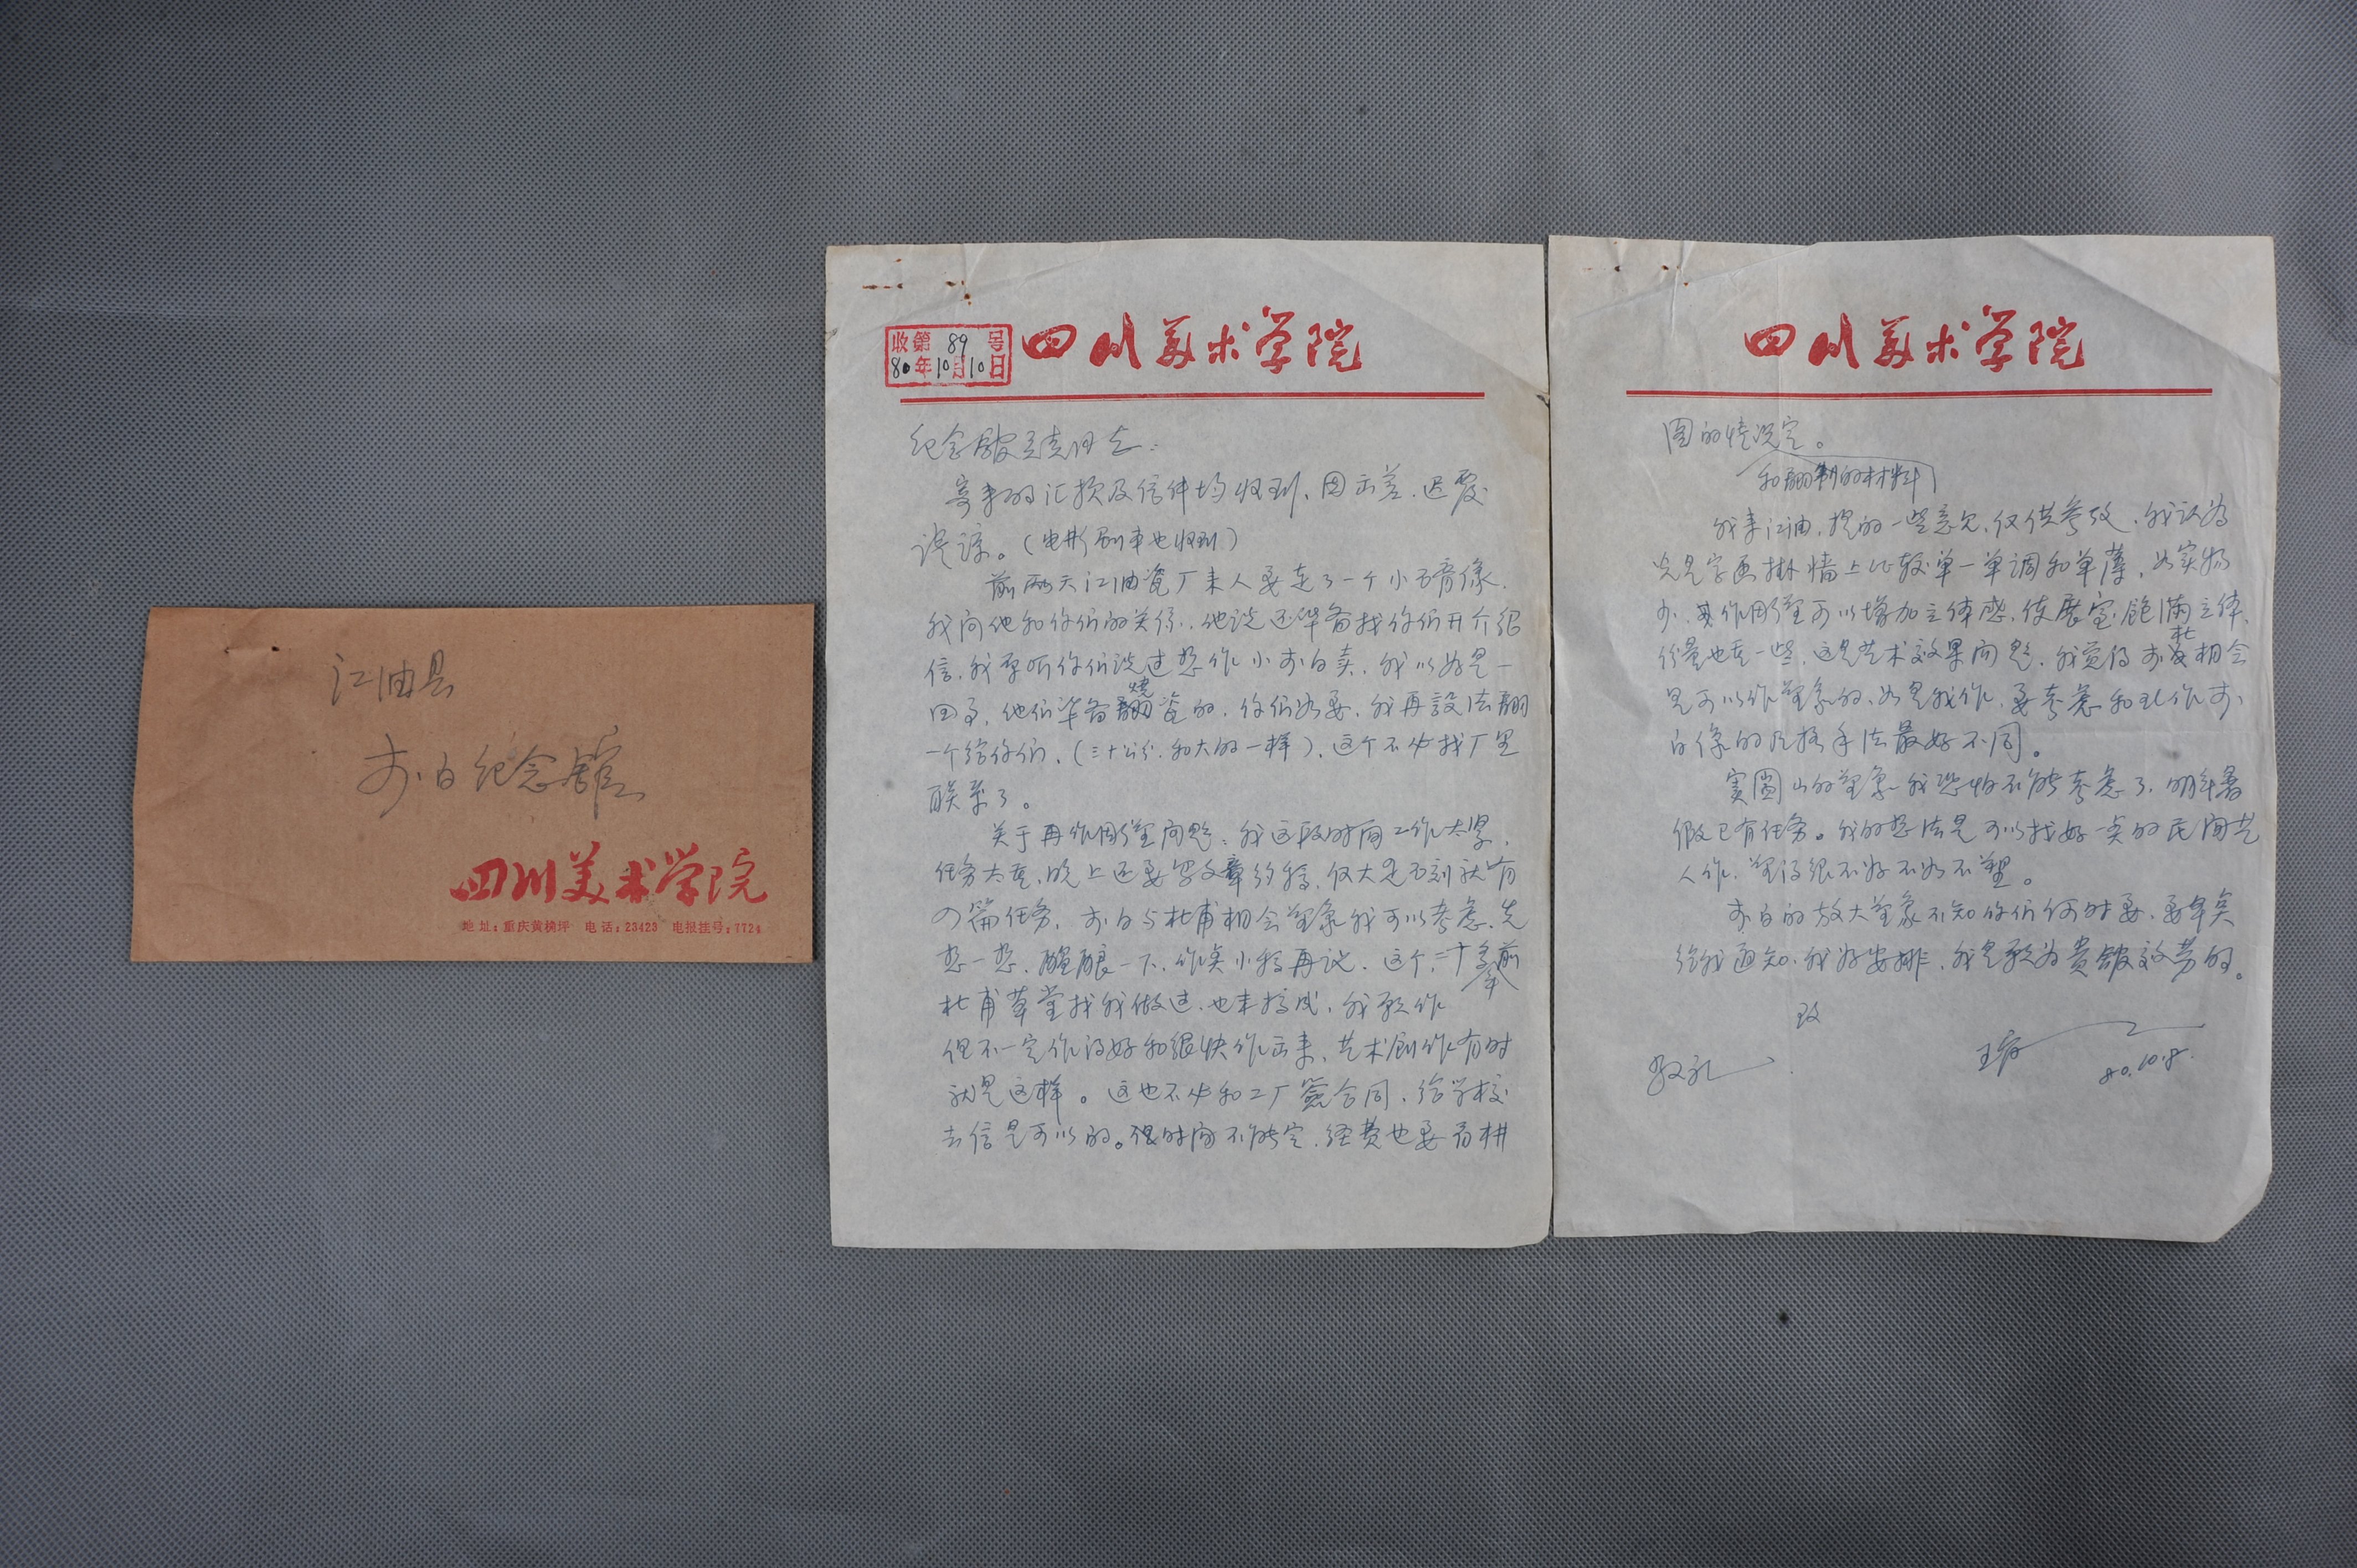 江油县
李白纪念馆
四川美术学院
地址：重庆黄桷坪 电话：23423 电报挂号：7724
收第 89 号
80年10月10日
四川美术学院
纪念馆负责同志：
寄来的汇款及信件均收到、因出差、迟覆
谅。（电影剧本也收到）
前两天江油瓷厂来人要走了一个小石膏像、
我问他和你们的关系、他说还准备找你们开介绍
信、我原听你们说过想作小李白卖、我以为是一
回事、他们准备烧瓷的、你们如要、我再設法翻
一个给你们、（三十公分、和大的一样）、这个不必找厂里
联系了。
关于再作雕塑问题：我这段时间工作太紧、
任务太重、晚上还要写文章约稿、仅大足石刻就有
四篇任务、李白与杜甫相会塑象我可以考虑、先
想一想、醖酿一下、作点小稿再说、这个二十多年前
杜甫草堂找我做过、也未搞成、我愿作
但不一定作得好和很快作出来、艺术創作有时
就是这样。这也不必和工厂签合同、给学校
去信是可以的。但时间不能定、经费也要看构
四川美术学院
图的情况定。
和翻制的材料
我来江油、提的一些意见、仅供参考、我认为
光是字画掛墙上比较单一单调和单薄、如实物
少、作雕塑可以增加立体感、使展室饱满立体、
份量也重一些、这是艺术效果问题、我觉得李杜相会
是可以作塑象的、如是我作、要考虑和北作李
白像的风格手法最好不同。
窦圌山的塑象我恐怕不能考虑了、明年暑
假已有任务。我的想法是可以找好一点的民间艺
人作、塑得很不好不如不塑。
李白的放大塑象不知你们何时要、要早点
给我通知、我好安排、我是愿为贵馆效劳的。
致
敬礼
80.10.8.